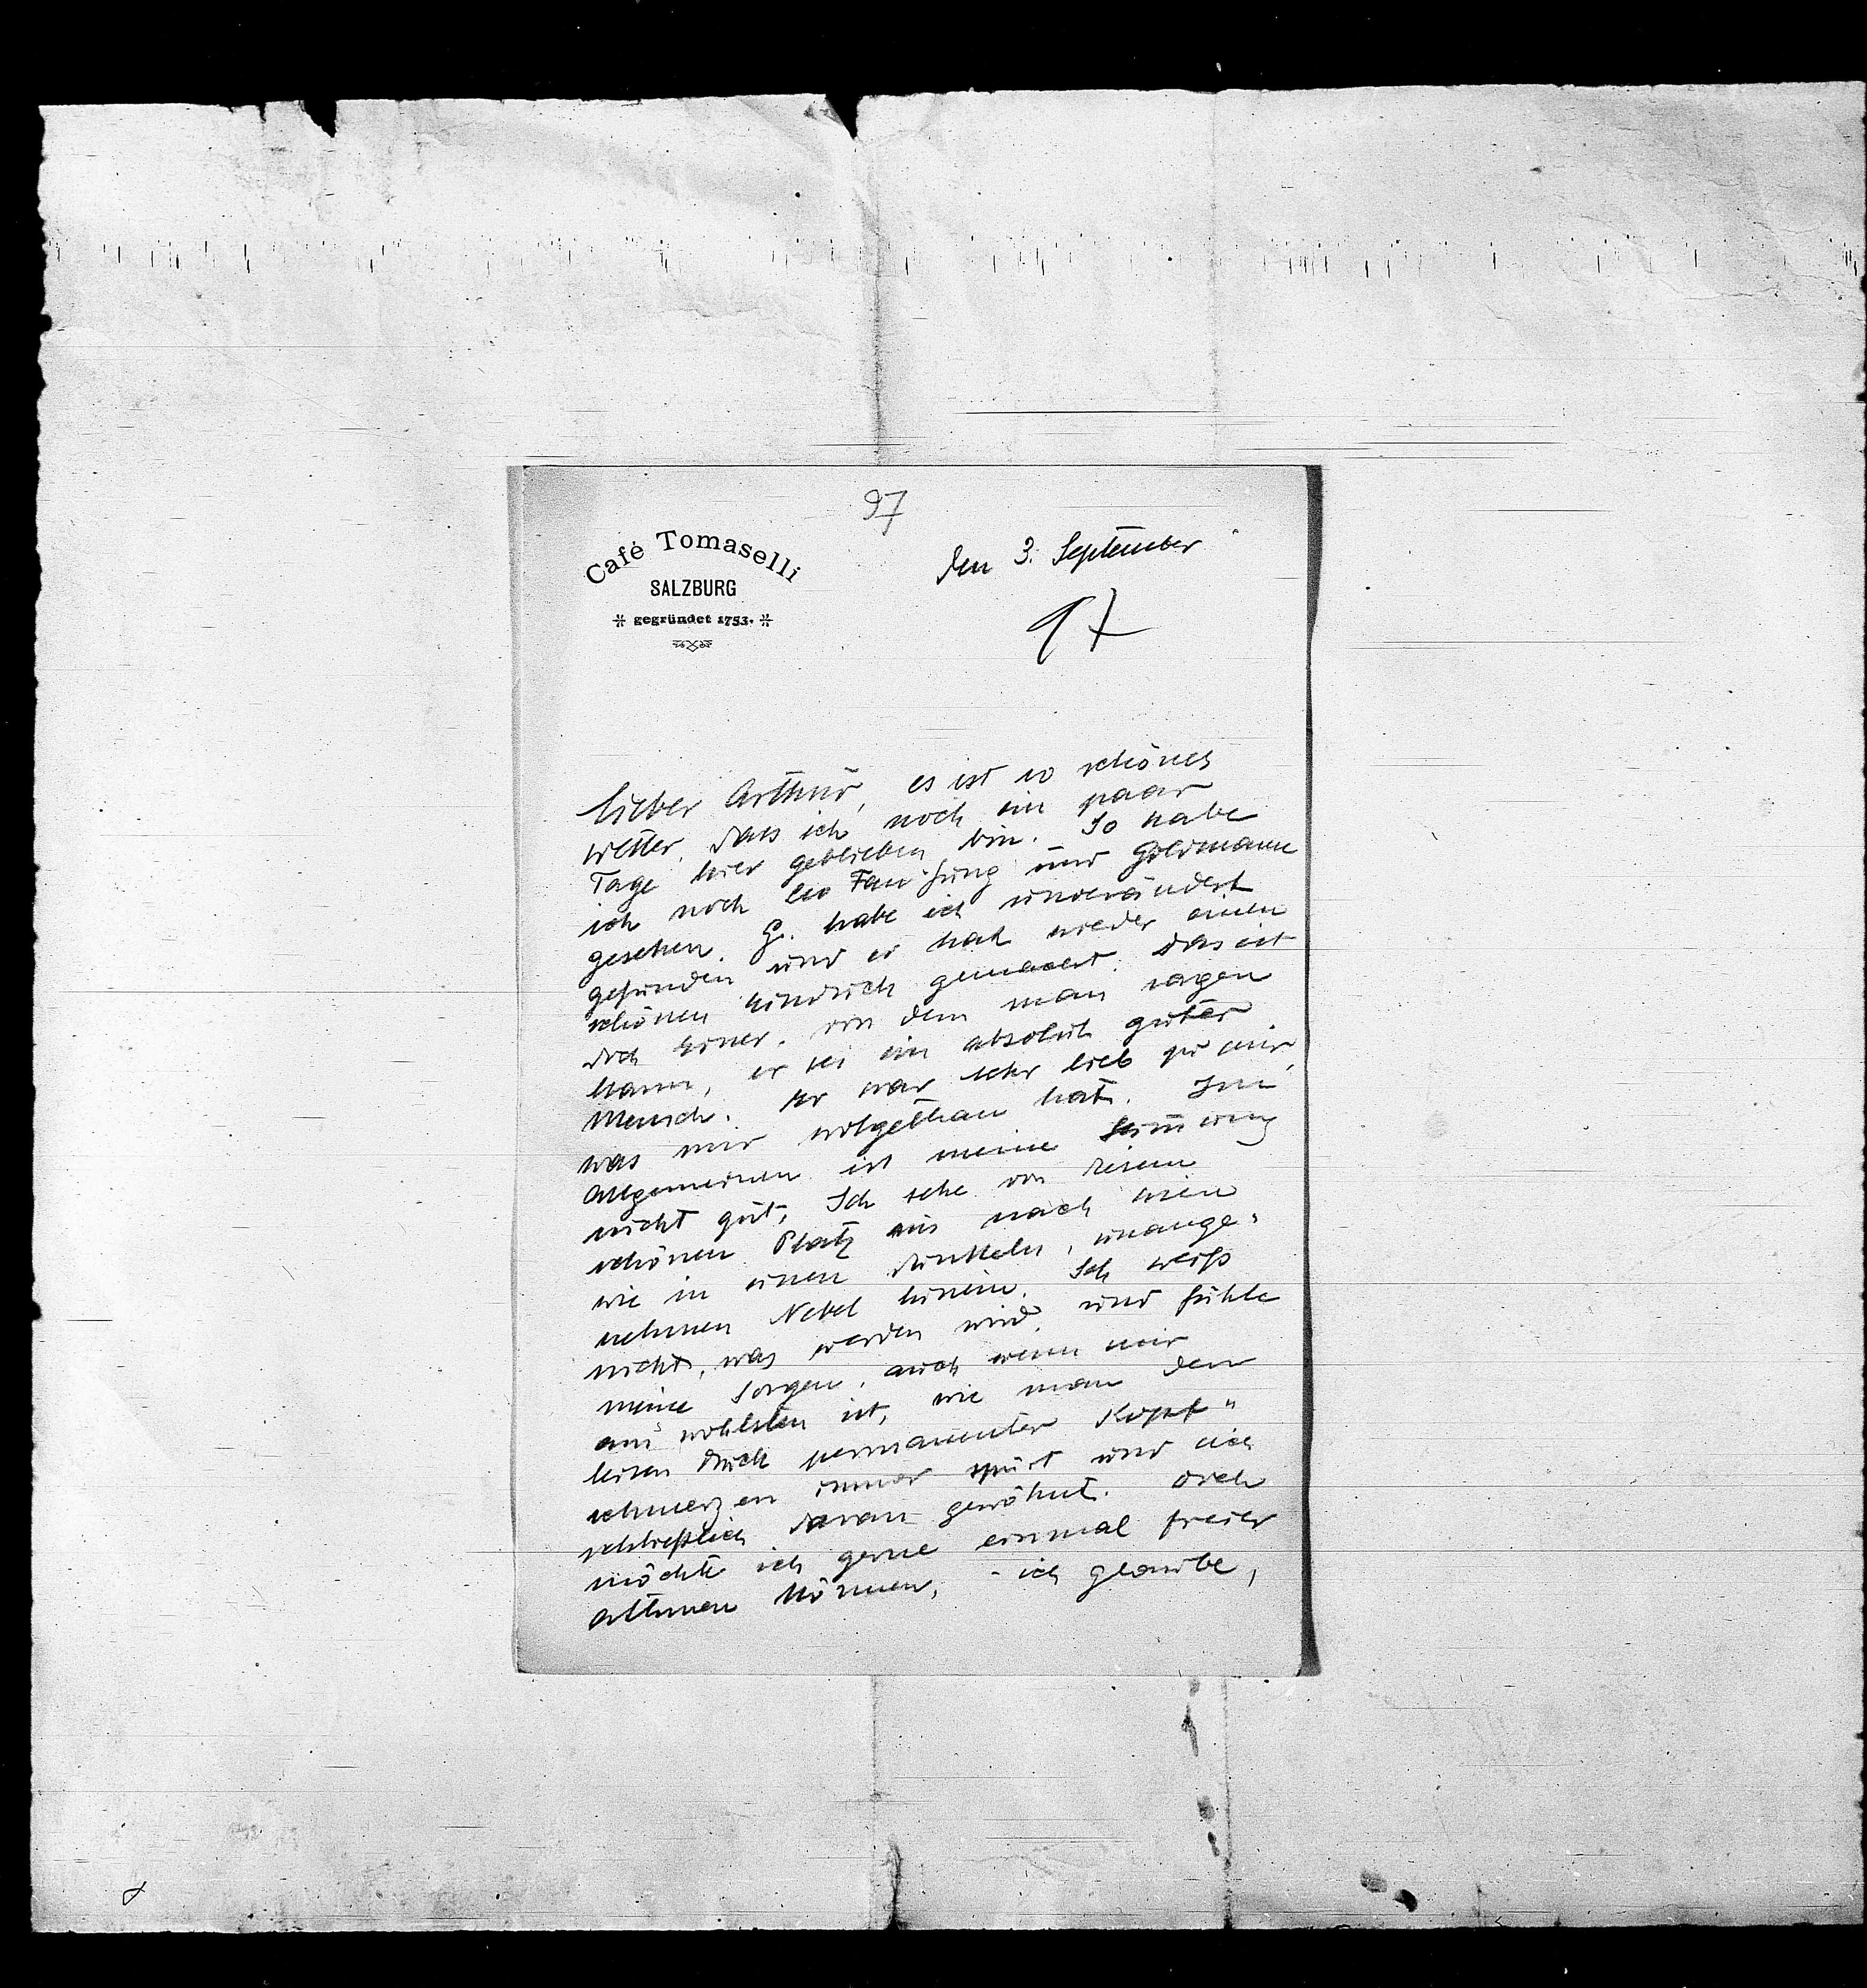 97
Café Tomaselli
SALZBURG
gegründet 1753.
den 3. September
97
Lieber Arthur, es ist so schönes
Wetter, dass ich noch ein paar
Tage hier geblieben bin. So habe
ich noch Leo Fan'Jung und Goldmann
gesehen. G. habe ich unverändert
gefunden und er hat wieder einen
schönen Eindruck gemacht. Das ist
doch Einer, von dem man sagen
kann, er sei ein absolut guter
Mensch. Er war sehr lieb zu mir,
was mir wolgethan hat. Im
Allgemeinen ist meine Stimmung
nicht gut, Ich sehe von diesem
schönen Platz aus nach Wien
wie in einen dunkeln, unange-
nehmen Nebel hinein. Ich weiß
nicht, was werden wird, und fühle
meine Sorgen, auch wenn mir
am wohlsten ist, wie man den
leisen Druck permanenter Kopf-
schmerzen immer spürt und sich
schließlich daran gewöhnt. Doch
möchte ich gerne einmal freier
athmen können, - ich glaube,